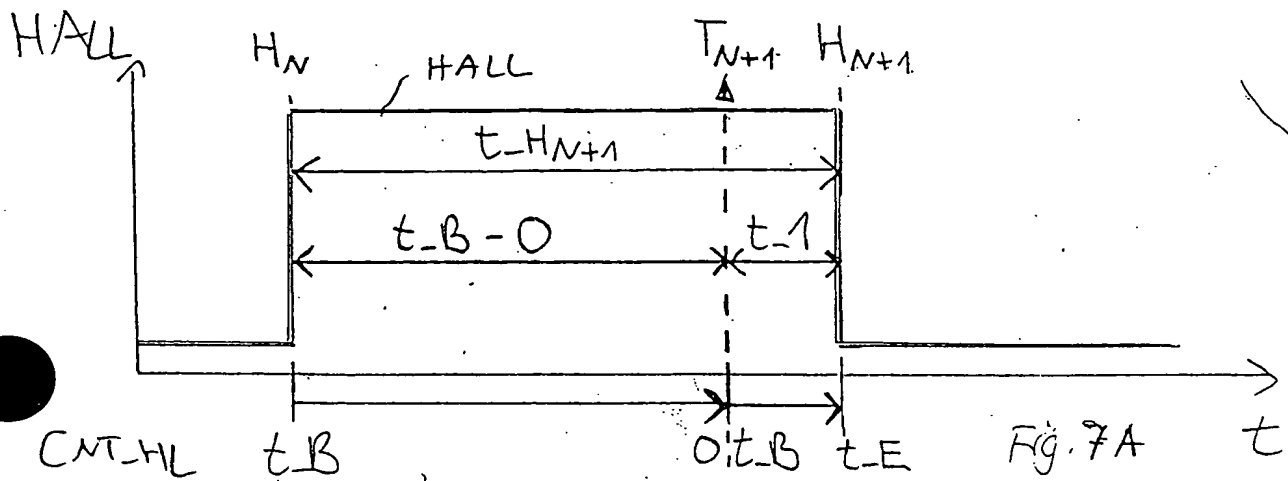 HALL
H_N
HALL
T_N+1
H_N+1
t_H_N+1
t_B-0
t_1
CNT_HL
t_B
0;t_B
t_E
Fig. 7A
t